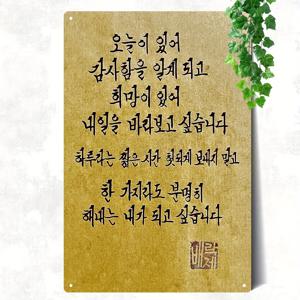 오늘이 있어
감사함을 알게 되고
희망이 있어
내일을 바라보고 싶습니다
하루라는 짧은 시간 헛되게 보내지 말고
한 가지라도 분명히
해내는 내가 되고 싶습니다